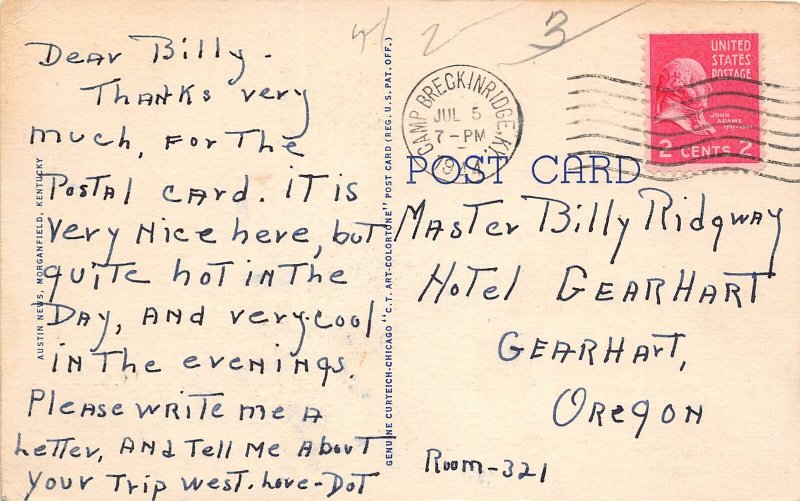 Dear Billy-
Thanks very
much, for the
Postal card. It is
very nice here, but
quite hot in the
Day, and very cool
in the evenings.
Please write me a
letter, and tell me about
your trip west. Love-Dot
AUSTIN NEWS, MORGANFIELD, KENTUCKY
GENUINE CURTEICH-CHICAGO "C.T. ART-COLORTONE" POST CARD (REG. U.S. PAT. OFF.)
2 3
CAMP BRECKINRIDGE, KY.
JUL 5
7-PM
1944
UNITED
STATES
POSTAGE
JOHN
ADAMS
1797-1801
2 CENTS 2
POST CARD
Master Billy Ridgway
Hotel Gearhart
Gearhart,
Oregon
Room-321